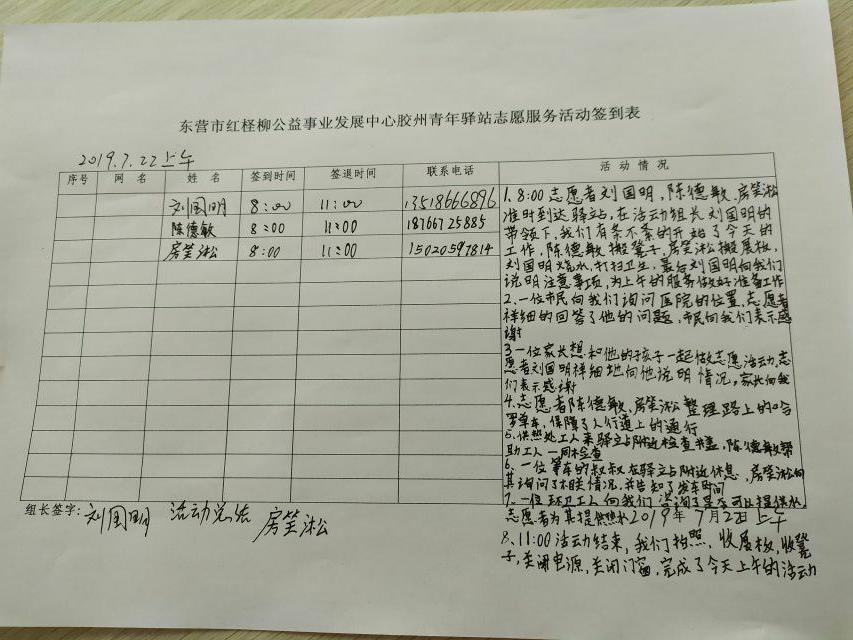 东营市红柽柳公益事业发展中心胶州青年驿站志愿服务活动签到表
2019.7.22上午
序号 网 名 姓 名 签到时间 签退时间 联系电话 活 动 情 况
刘国明 8:00 11:00 13518666896
陈德敏 8:00 11:00 18766725885
房笑淞 8:00 11:00 15020597814
1.8:00志愿者刘国明,陈德敏、房笑淞
准时到达驿站,在活动组长刘国明的
带领下,我们有条不紊的开始了今天的
工作,陈德敏搬凳子,房笑淞搬展板,
刘国明烧水,打扫卫生,最后刘国明向我们
说明注意事项,为上午的服务做好准备工作
2.一位市民向我们询问医院的位置,志愿者
详细的回答了他的问题,市民向我们表示感
谢
3.一位家长想和他的孩子一起做志愿活动,志
愿者刘国明详细地向他说明情况,家长向我
们表示感谢
4.志愿者陈德敏、房笑淞整理路上的哈
罗单车,保障了人行道上的通行
5.供热处工人来驿站附近检查井盖,陈德敏帮
助工人一同检查
6.一位等车的叔叔在驿站附近休息,房笑淞向
其询问了相关情况,并告知了发车时间
7.一位环卫工人向我们咨询了是否可以提供水
志愿者为其提供热水2019年7月22日上午
8.11:00活动结束,我们拍照、收展板,收凳
子,关闭电源,关闭门窗,完成了今天上午的活动
组长签字:刘国明 活动总结 房笑淞